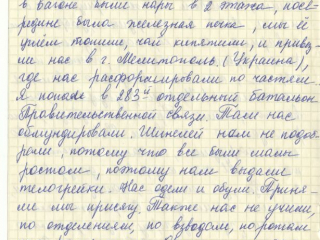 в вагоне были нары в 2 этажа, посе-
редине была железная печка, мы её
углём топили, чай кипятили, и привез-
ли нас в г. Мелитополь. (Украина),
где нас расформировали по частям.
Я попала в 283й отдельный батальон
Правительственной связи. Там нас
обмундировали. Шинелей нам не подоб-
рали, потому что все были малы
ростом, поэтому нам выдали
телогрейки. Нас одели и обули. Приня-
ли мы присягу. Также нас учили,
по отделениям, по взводам, по ротам